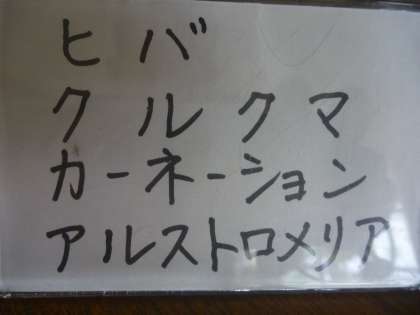 ヒバ
クルクマ
カーネーション
アルストロメリア